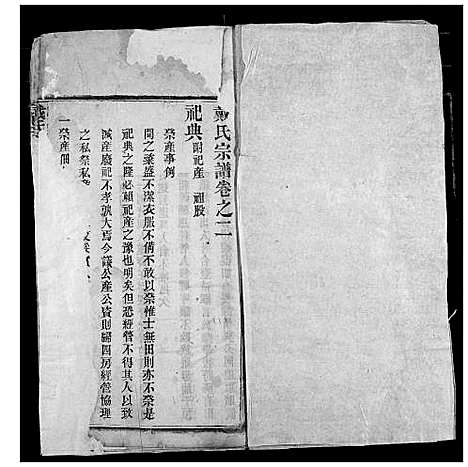 戴氏宗譜卷之二
祀典 附祀產 祖股
祭產事例
間之粢盛不潔衣服不備不敢以祭惟士無田則亦不祭是
祀典之隆必賴祀產之豫也明矣但恐經營不得其人以致
減產廢祀不孝孰大焉今議公產公資則歸四房經營協理
之私祭私
一祭產佃